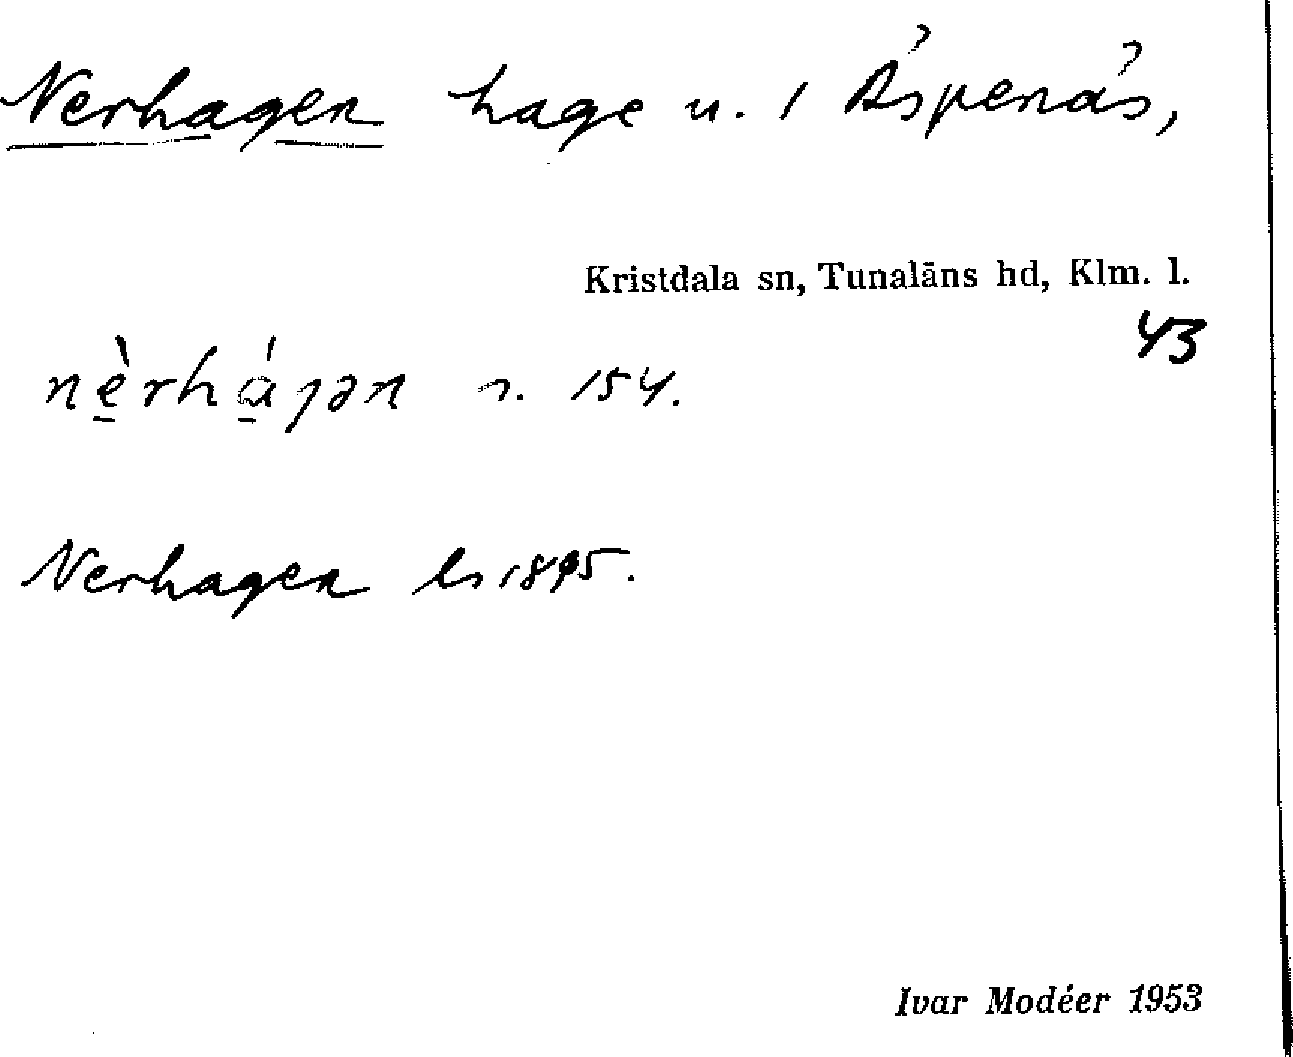 Nerhagen hage u. 1 Äspenäs,
Kristdala sn, Tunaläns hd, Klm. l.
43
nèrhájən s. 154.
Nerhagen ls 1895.
Ivar Modéer 1953